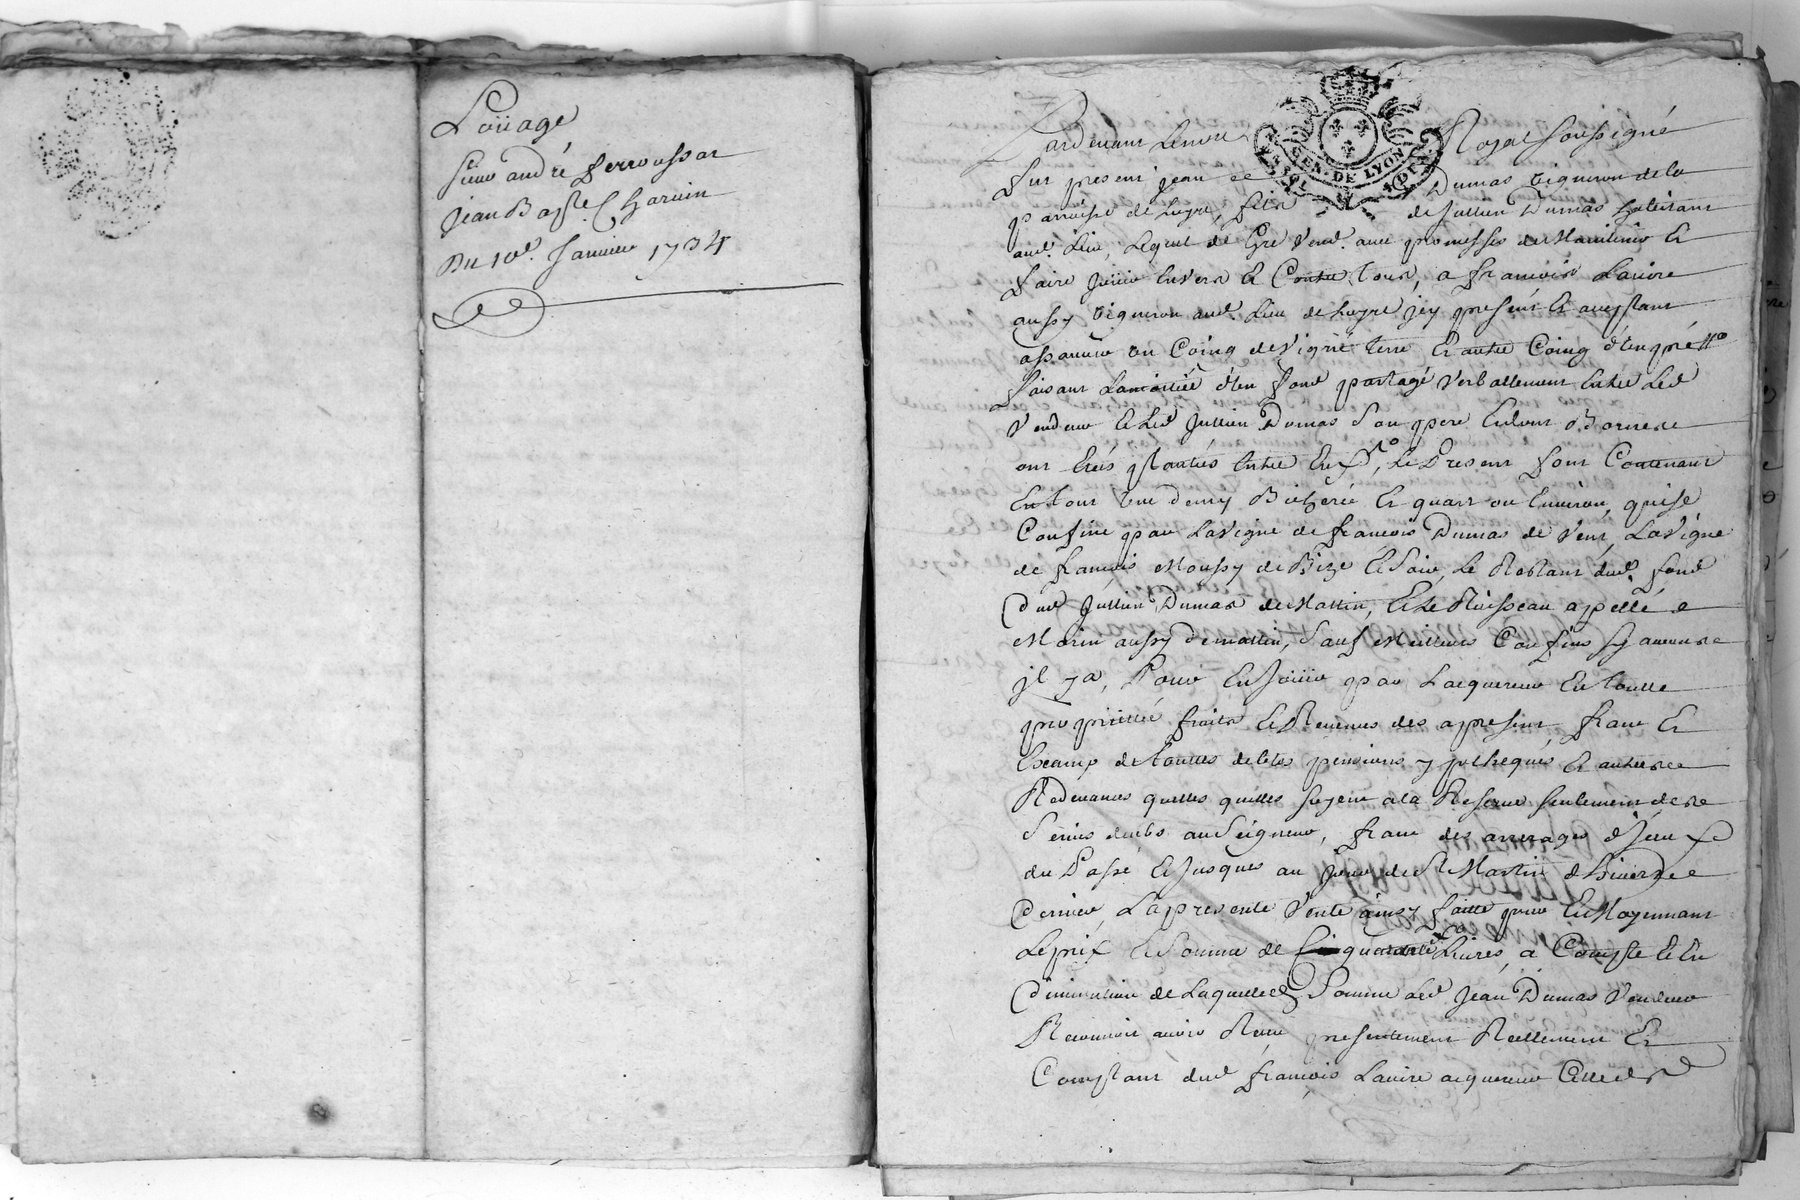 Loüage
Sieur andré Ferroussat
Jean Bapte. Charvin
Du 10e. Janvier 1734
GEN. DE LYON
Pardevant Le not.re Royal soussigné
Fut present Jean Dumas vigneron de la
parroisse de Luyre, fils de Jullien Dumas habitant
aud. Lieu, Lequel de Gre Vend. avec promesses de Maintenir Et
faire Jouir Envers Et Contre tous, a francois Lavire
aussy vigneron aud. Lieu de Luyre jcy présent Et acceptant
assavoir un Coing de Vigne terre Et autre Coing d'En pré
faisant La moitié d'En fond partagé Verballement Entre Led
Vendeur Et Led Jullien Dumas Son pere Endont Bornes
ont Etéés plantéés Entre Eux, Le Present fond Contenant
En tout une demy Bicherée Et quart ou Environ, qui se
Confine par La Vigne de francois Dumas de Vent, La Vigne
de francois Moussy de Bize Et Soir, Le Restant dud. fond
dud Jullien Dumas de Mattin, Et Le Ruisseau apellé
Morin aussy de mattin, Sauf Meilleurs Confins Sy aucuns
jl y a, Pour En Jouir par L'acquereur En toutte
propriettée fruits Et Revenus des apresent, franc Et
Exempt de touttes debtes pensions ypotheques Et autres
Redevances quelles quelles soyent a la Reserve seulement des
Servis deubs au Seigneur, franc des arrerages d'Jceux
du Passé Et Jusques au Jour de St Martin d'hiver
dernier, La presente Vente ainsy faitte pour Et Moyennant
Le prix Et Somme de quarante Livres, a Compte Et En
diminution de Laquelle Somme Led Jean Dumas Vendeur
Reconnoit avoir Receu presentement Reellement Et
Comptant dud francois Lavire acquereur Celle de